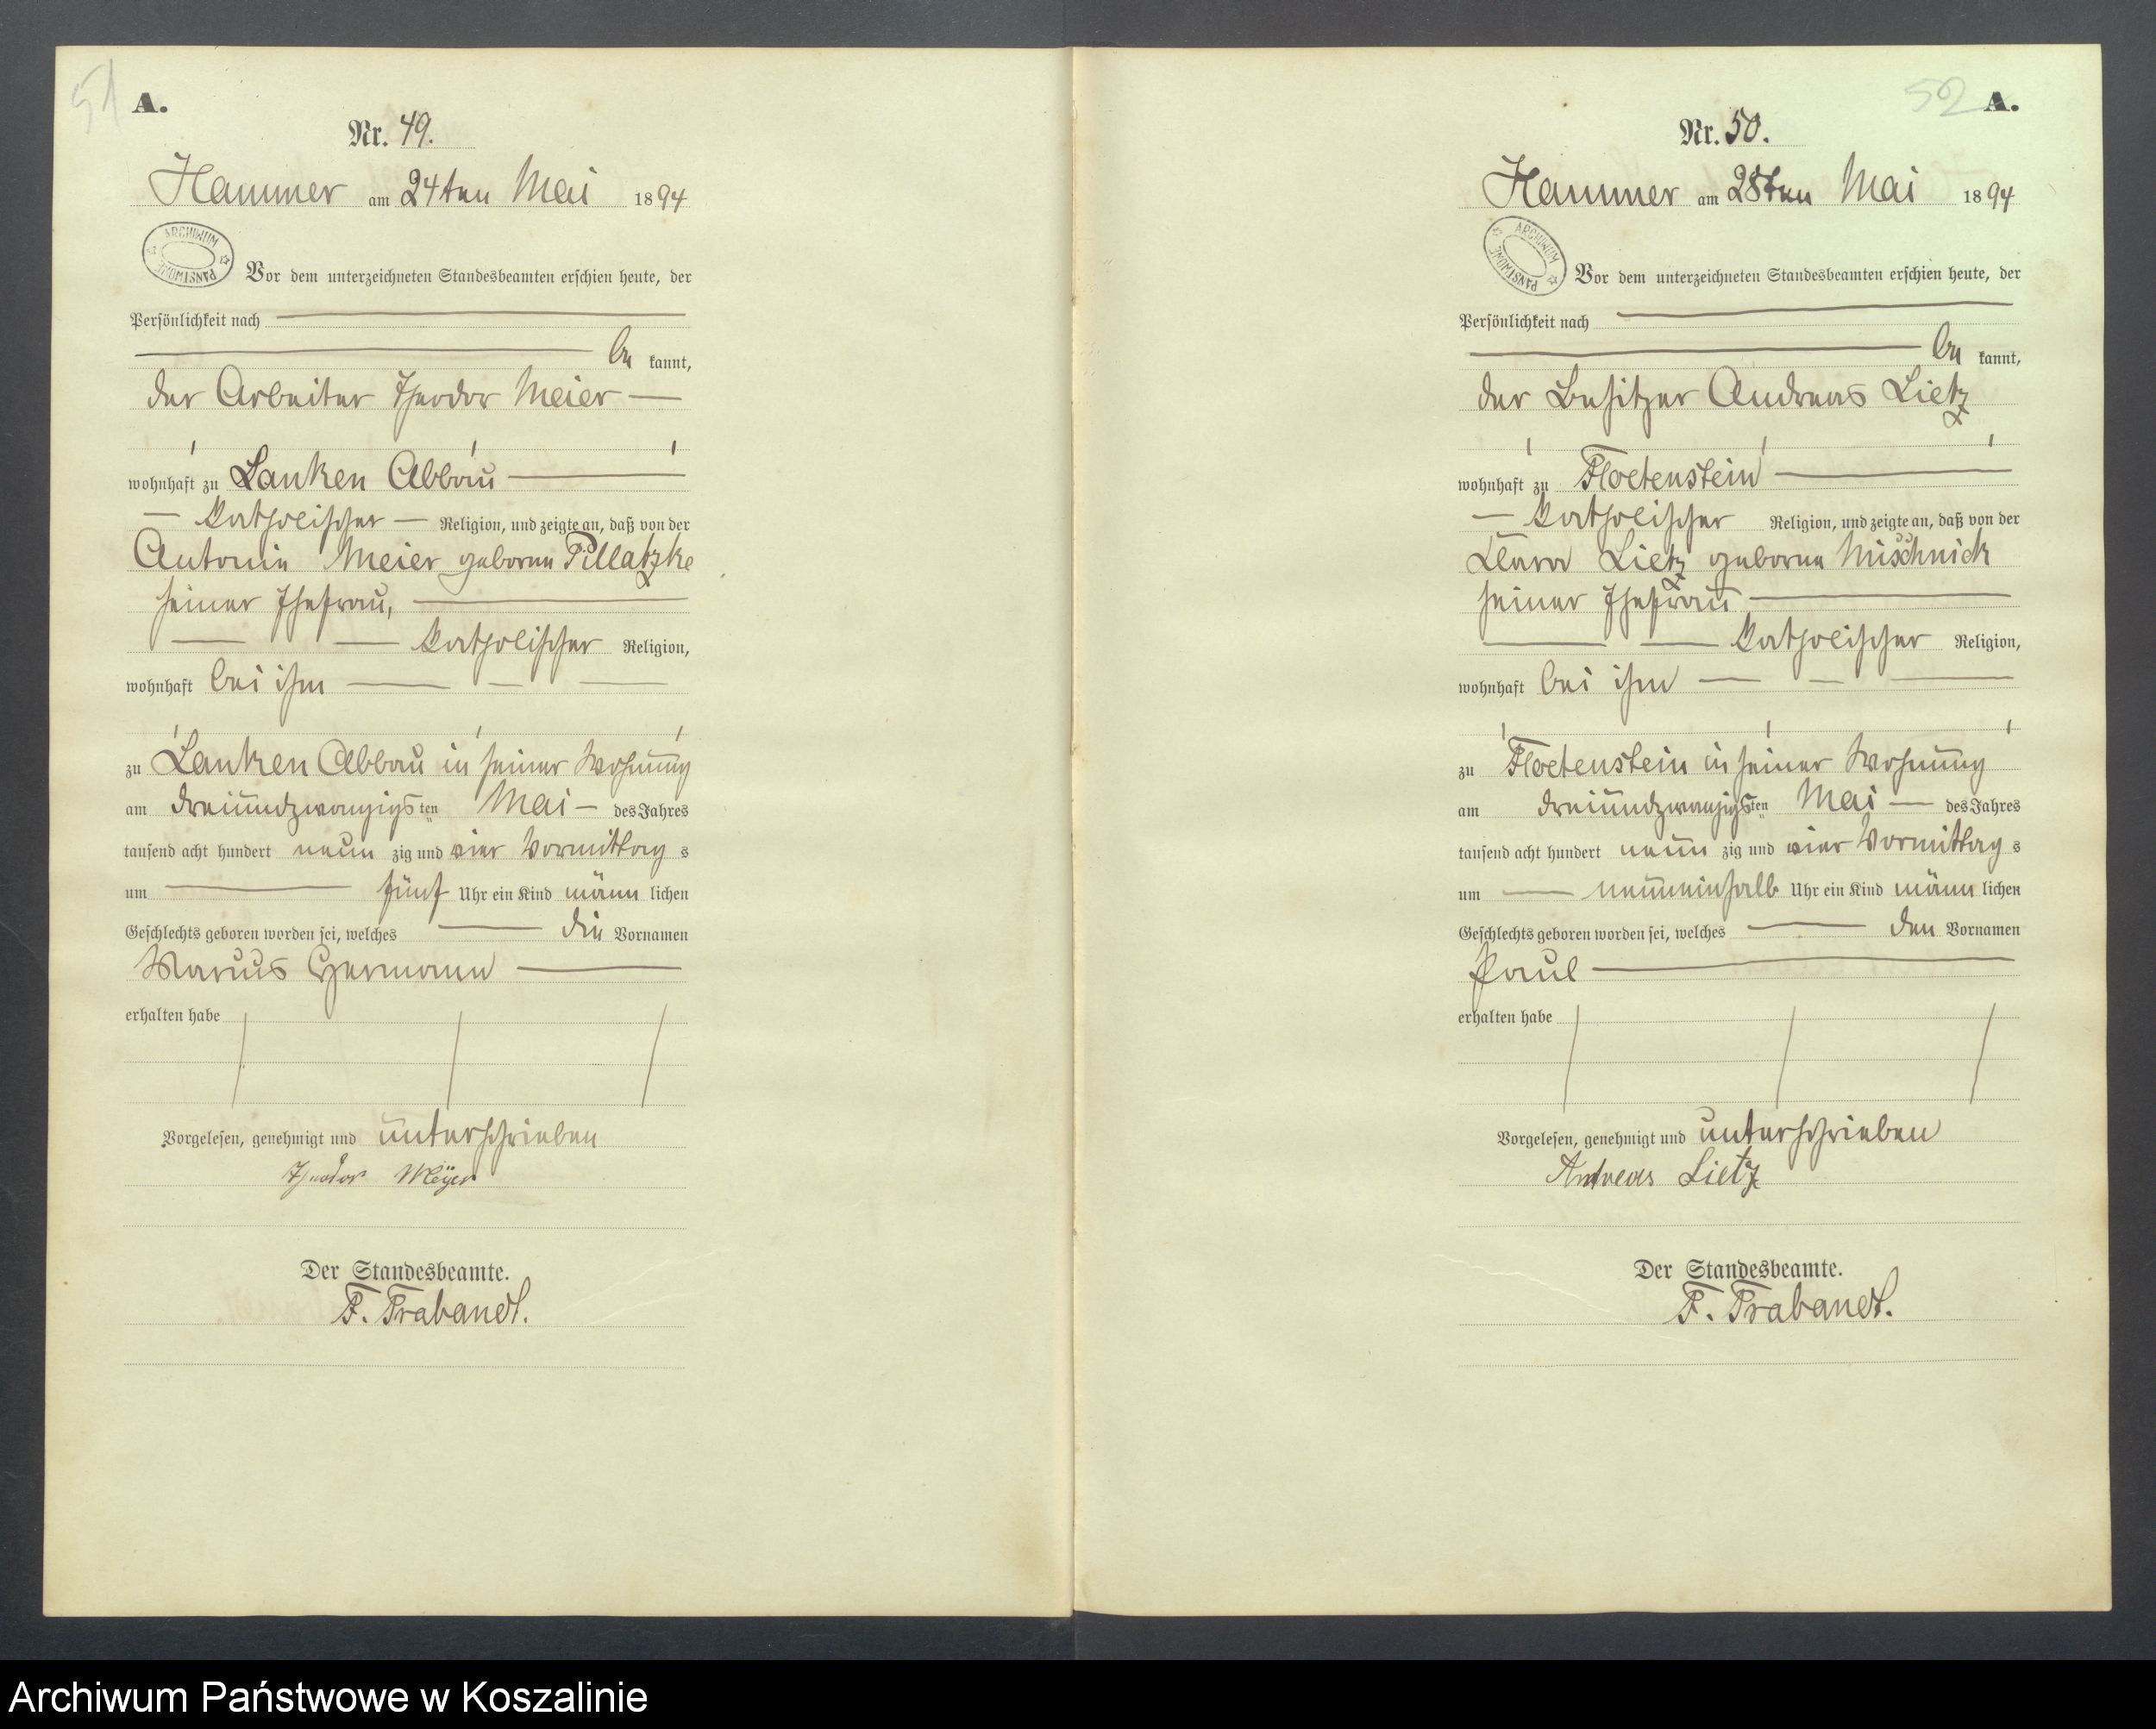 51
A.
Nr. 49.
Hammer am 24ten Mai 1894
ARCHIWUM PAŃSTWOWE
Vor dem unterzeichneten Standesbeamten erschien heute, der
Persönlichkeit nach
be kannt,
der Arbeiter Theodor Meier
wohnhaft zu Lanken Abbau
katholischer Religion, und zeigte an, daß von der
Antonie Meier geborne Pillatzke
seiner Ehefrau,
katholischer Religion,
wohnhaft bei ihm
zu Lanken Abbau in seiner Wohnung
am dreiundzwanzigsten Mai des Jahres
tausend acht hundert neun zig und vier Vormittag s
um fünf Uhr ein Kind männ lichen
Geschlechts geboren worden sei, welches die Vornamen
Hermann
erhalten habe
Vorgelesen, genehmigt und unterschrieben
Theodor Meÿer
Der Standesbeamte.
F. Trabandt.
52
A.
Nr. 50.
Hammer am 28ten Mai 1894
ARCHIWUM PAŃSTWOWE
Vor dem unterzeichneten Standesbeamten erschien heute, der
Persönlichkeit nach
be kannt,
der Besitzer Andreas Lietz
wohnhaft zu Floetenstein
katholischer Religion, und zeigte an, daß von der
Clara Lietz geborne Mischnick
seiner Ehefrau
katholischer Religion,
wohnhaft bei ihm
zu Floetenstein in seiner Wohnung
am dreiundzwanzigsten Mai des Jahres
tausend acht hundert neun zig und vier Vormittag s
um neuneinhalb Uhr ein Kind männ lichen
Geschlechts geboren worden sei, welches den Vornamen
Paul
erhalten habe
Vorgelesen, genehmigt und unterschrieben
Andreas Lietz
Der Standesbeamte.
F. Trabandt.
Archiwum Państwowe w Koszalinie